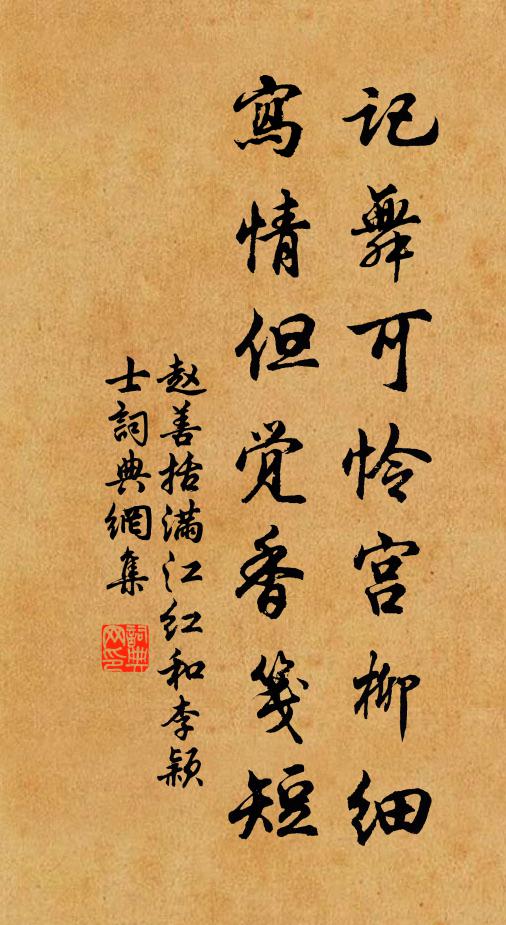 记舞可怜宫柳细
寫情但觉香笺短
赵善括满江红和李颖
士詞典網集
詞典
网印